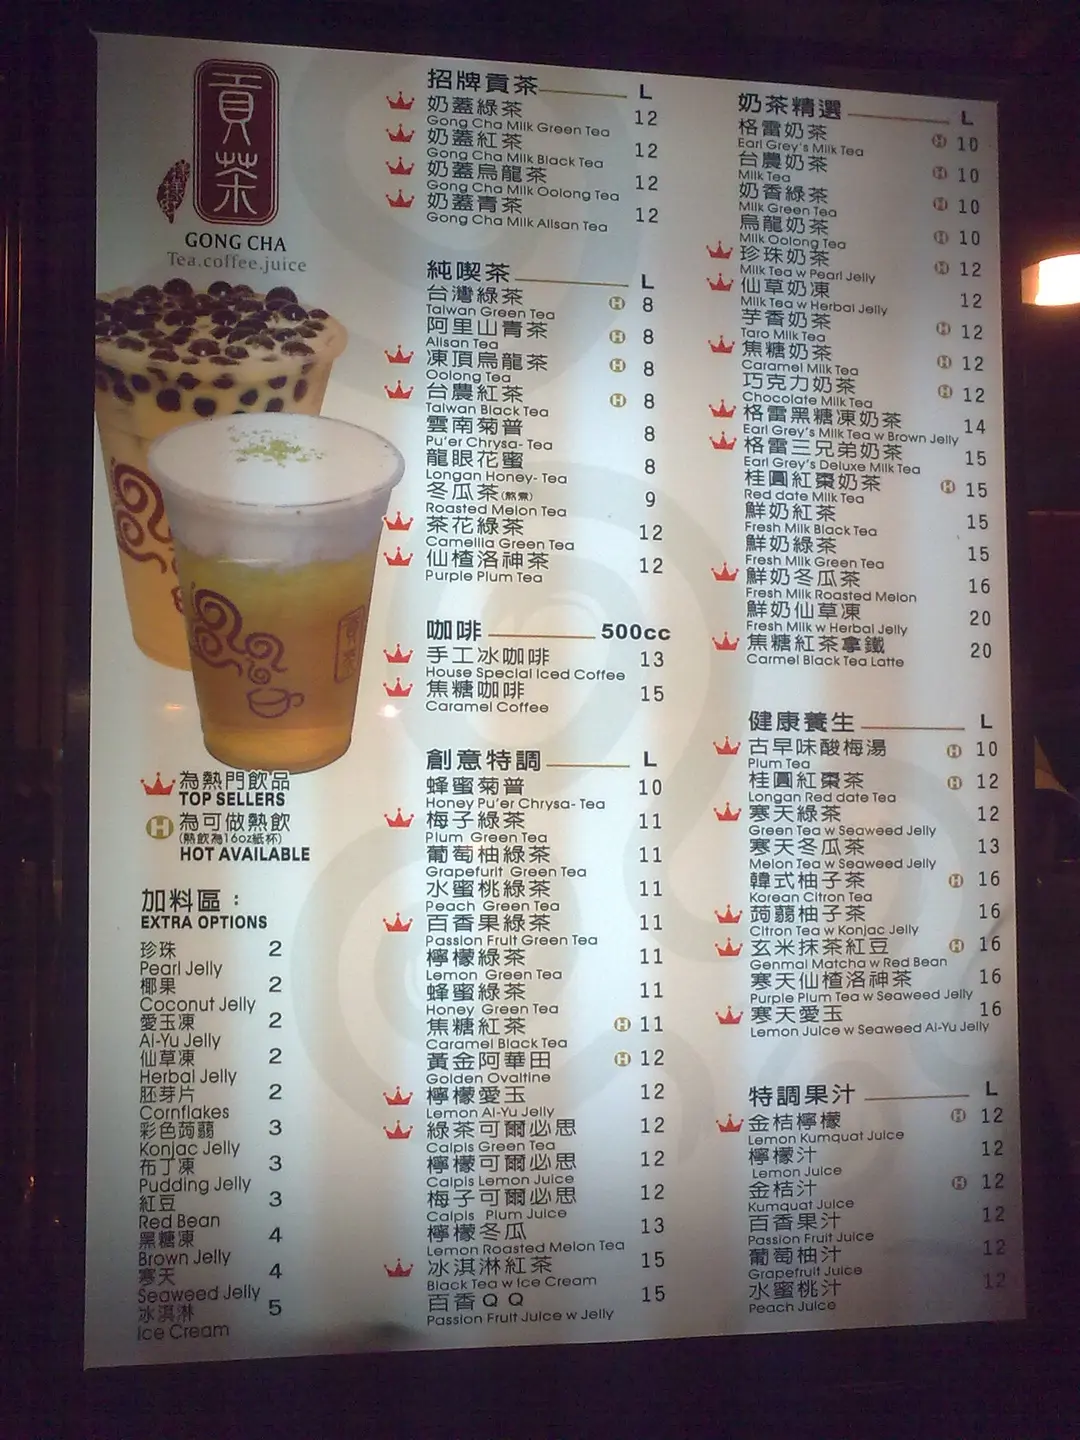 貢茶
GONG CHA
Tea.coffee.juice
為熱門飲品
TOP SELLERS
H 為可做熱飲
(熱飲為16oz紙杯)
HOT AVAILABLE
加料區：
EXTRA OPTIONS
珍珠 2
Pearl Jelly
椰果 2
Coconut Jelly
愛玉凍 2
Ai-Yu Jelly
仙草凍 2
Herbal Jelly
胚芽片 2
Cornflakes
彩色蒟蒻 3
Konjac Jelly
布丁凍 3
Pudding Jelly
紅豆 3
Red Bean
黑糖凍 4
Brown Jelly
寒天 4
Seaweed Jelly
冰淇淋 5
Ice Cream
招牌貢茶 L
奶蓋綠茶 12
Gong Cha Milk Green Tea
奶蓋紅茶 12
Gong Cha Milk Black Tea
奶蓋烏龍茶 12
Gong Cha Milk Oolong Tea
奶蓋青茶 12
Gong Cha Milk Alisan Tea
純喫茶 L
台灣綠茶 H 8
Taiwan Green Tea
阿里山青茶 H 8
Alisan Tea
凍頂烏龍茶 H 8
Oolong Tea
台農紅茶 H 8
Taiwan Black Tea
雲南菊普 8
Pu'er Chrysa- Tea
龍眼花蜜 8
Longan Honey- Tea
冬瓜茶(熬煮) 9
Roasted Melon Tea
茶花綠茶 12
Camellia Green Tea
仙楂洛神茶 12
Purple Plum Tea
咖啡 500cc
手工冰咖啡 13
House Special Iced Coffee
焦糖咖啡 15
Caramel Coffee
創意特調 L
蜂蜜菊普 10
Honey Pu'er Chrysa- Tea
梅子綠茶 11
Plum Green Tea
葡萄柚綠茶 11
Grapefurit Green Tea
水蜜桃綠茶 11
Peach Green Tea
百香果綠茶 11
Passion Fruit Green Tea
檸檬綠茶 11
Lemon Green Tea
蜂蜜綠茶 11
Honey Green Tea
焦糖紅茶 H 11
Caramel Black Tea
黃金阿華田 H 12
Golden Ovaltine
檸檬愛玉 12
Lemon Al-Yu Jelly
綠茶可爾必思 12
Calpis Green Tea
檸檬可爾必思 12
Calpis Lemon Juice
梅子可爾必思 12
Calpis Plum Juice
檸檬冬瓜 13
Lemon Roasted Melon Tea
冰淇淋紅茶 15
Black Tea w Ice Cream
百香QQ 15
Passion Fruit Juice w Jelly
奶茶精選 L
格雷奶茶 H 10
Earl Grey's Milk Tea
台農奶茶 H 10
Milk Tea
奶香綠茶 H 10
Milk Green Tea
烏龍奶茶 H 10
Milk Oolong Tea
珍珠奶茶 H 12
Milk Tea w Pearl Jelly
仙草奶凍 12
Milk Tea w Herbal Jelly
芋香奶茶 H 12
Taro Milk Tea
焦糖奶茶 H 12
Caramel Milk Tea
巧克力奶茶 H 12
Chocolate Milk Tea
格雷黑糖凍奶茶 14
Earl Grey's Milk Tea w Brown Jelly
格雷三兄弟奶茶 15
Earl Grey's Deluxe Milk Tea
桂圓紅棗奶茶 H 15
Red date Milk Tea
鮮奶紅茶 15
Fresh Milk Black Tea
鮮奶綠茶 15
Fresh Milk Green Tea
鮮奶冬瓜茶 16
Fresh Milk Roasted Melon
鮮奶仙草凍 20
Fresh Milk w Herbal Jelly
焦糖紅茶拿鐵 20
Carmel Black Tea Latte
健康養生 L
古早味酸梅湯 H 10
Plum Tea
桂圓紅棗茶 H 12
Longan Red date Tea
寒天綠茶 12
Green Tea w Seaweed Jelly
寒天冬瓜茶 13
Melon Tea w Seaweed Jelly
韓式柚子茶 H 16
Korean Citron Tea
蒟蒻柚子茶 16
Citron Tea w Konjac Jelly
玄米抹茶紅豆 H 16
Genmai Matcha w Red Bean
寒天仙楂洛神茶 16
Purple Plum Tea w Seaweed Jelly
寒天愛玉 16
Lemon Juice w Seaweed Al-Yu Jelly
特調果汁 L
金桔檸檬 H 12
Lemon Kumquat Juice
檸檬汁 12
Lemon Juice
金桔汁 H 12
Kumquat Juice
百香果汁 12
Passion Fruit Juice
葡萄柚汁 12
Grapefruit Juice
水蜜桃汁 12
Peach Juice